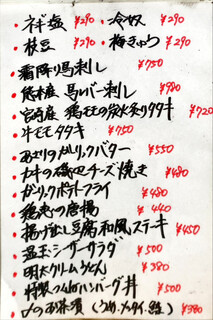 ・ネギ塩 ¥290 ・冷奴 ¥290
・枝豆 ¥290 ・梅きゅう ¥290
・霜降り馬刺し ¥750
・熊本産 馬レバー刺し ¥980
・宮崎産 鶏モモの炭火炙りタタキ ¥720
・牛モモタタキ ¥750
・あさりのガーリックバター ¥550
・カキの磯辺チーズ焼き ¥480
・ガーリックポテトフライ ¥480
・鶏もも唐揚 ¥440
・揚げ出し豆腐和風ステーキ ¥450
・温玉シーザーサラダ ¥500
・明太クリームうどん ¥380
・特製つくねハンバーグ丼 ¥500
・〆のお茶漬（うめ、メンタイ、鮭） ¥380